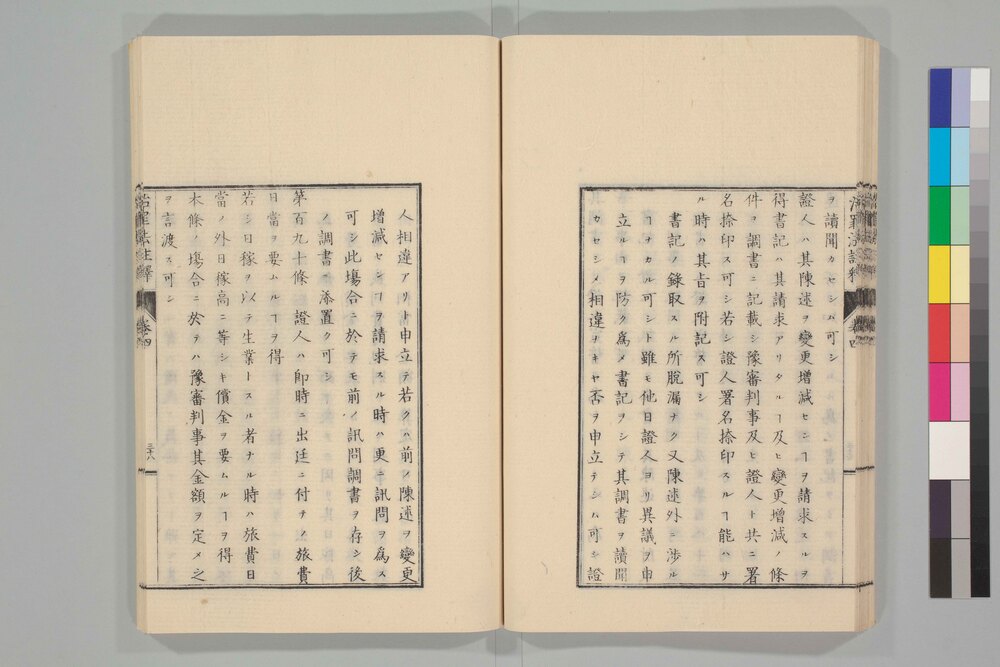 ヲ讀聞カセシム可シ
證人ハ其陳述ヲ變更増減セシヿヲ請求スルヲ
得書記ハ其請求アリタルヿ及ヒ變更増減ノ條
件ヲ調書ニ記載シ豫審判事及ヒ證人ト共ニ署
名捺印ス可シ若シ證人署名捺印スルヿ能ハサ
ル時ハ其旨ヲ附記ス可シ
書記ノ錄取スル所脱漏ナク又陳述外ニ渉ル
ヿヲカル可シト雖モ他日證人ヨリ異議ヲ申
立ルヿヲ防ク爲メ書記ヲシテ其調書ヲ讀聞
カセシメ相違ヲキヤ否ヲ申立テシム可シ證
人相違アリト申立テ若クハ前ノ陳述ヲ變更
増減センヿヲ請求スル時ハ更ニ訊問ヲ爲ス
可シ此塲合ニ於テモ前ノ訊問調書ヲ存シ後
ノ調書ニ添置ク可シ
第百九十條 證人ハ即時ニ出廷ニ付テノ旅費
日當ヲ要ムルヿヲ得
若シ日稼ヲ以テ生業トスル者ナル時ハ旅費日
當ノ外日稼高ニ等シキ償金ヲ要ムルヿヲ得
本條ノ塲合ニ於テハ豫審判事其金額ヲ定メ之
ヲ言渡ス可シ
治罪法註釋 卷四 三十六